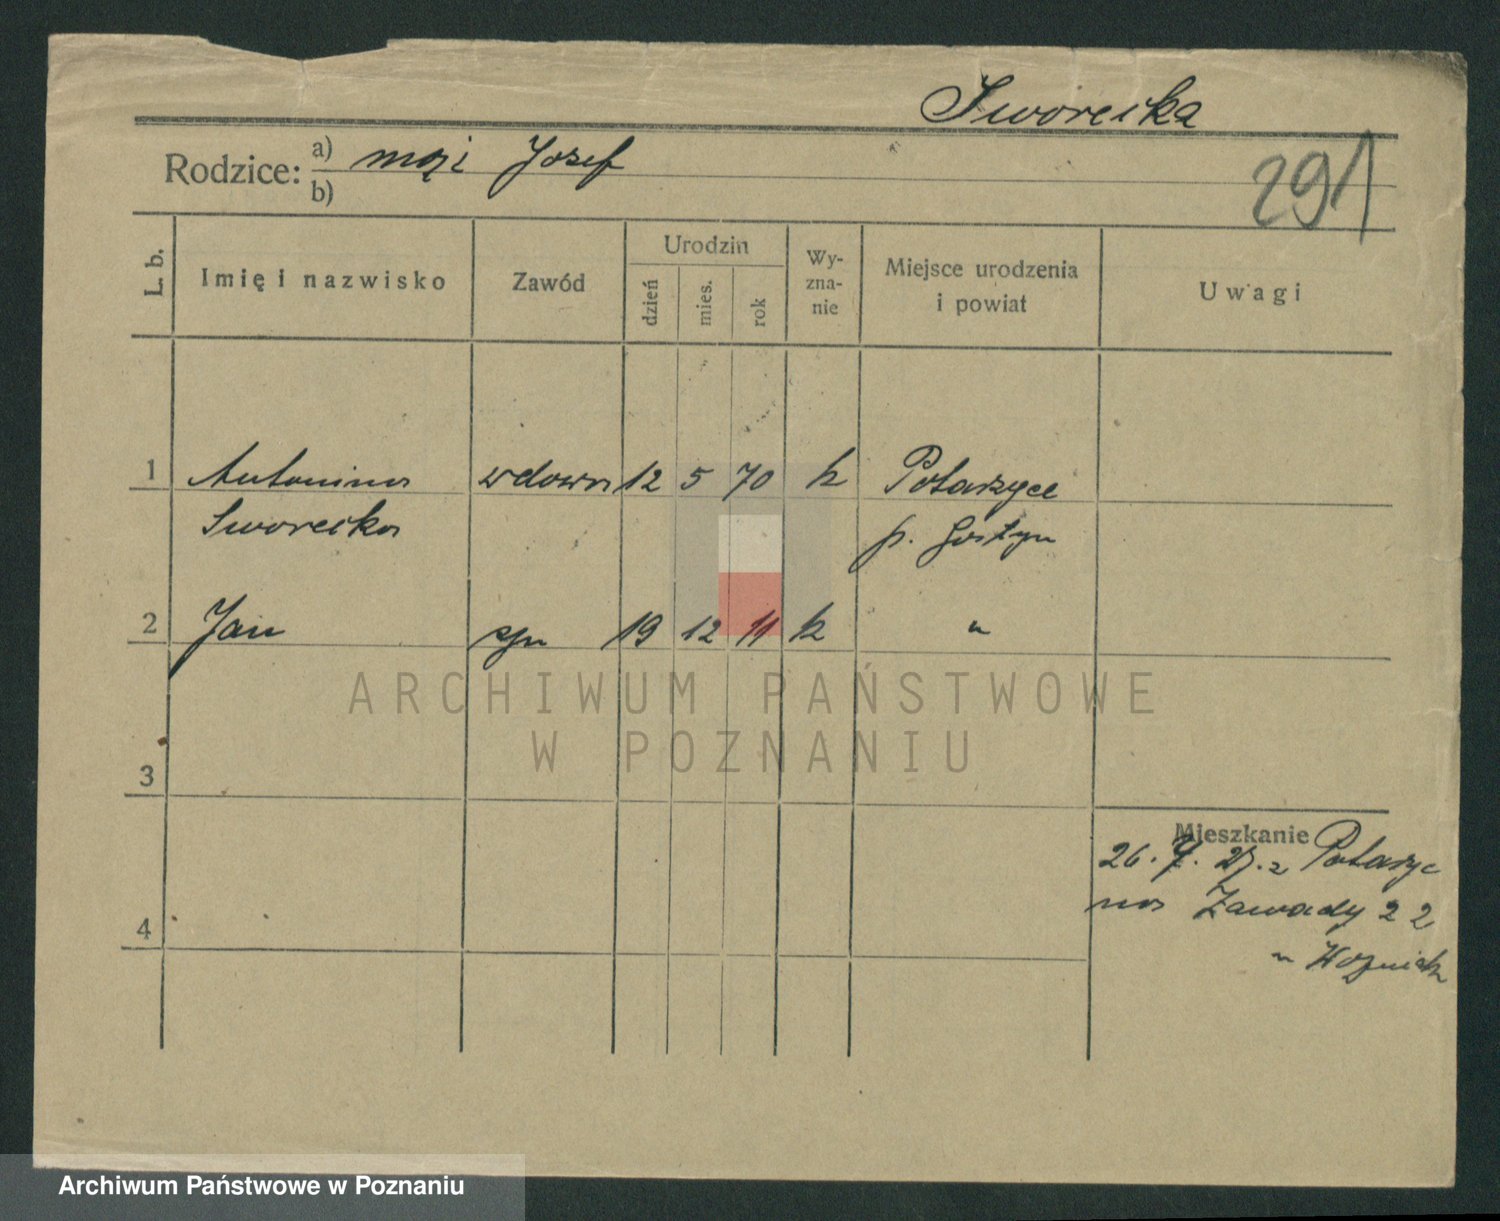 Sworcika
Rodzice: a) mąż Josef
b)
291
L. b.
Imię i nazwisko
Zawód
Urodzin
dzień
mies.
rok
Wy-
zna-
nie
Miejsce urodzenia
i powiat
Uwagi
1 Antonina wdowa 12 5 70 k Potarzyce
p. Gostyn
2 Jan syn 19 12 11 k "
3
Mieszkanie
26. 7. 27. z Potarzyc
na Zawady 22
4
u Woźniak
ARCHIWUM PAŃSTWOWE
W POZNANIU
Archiwum Państwowe w Poznaniu